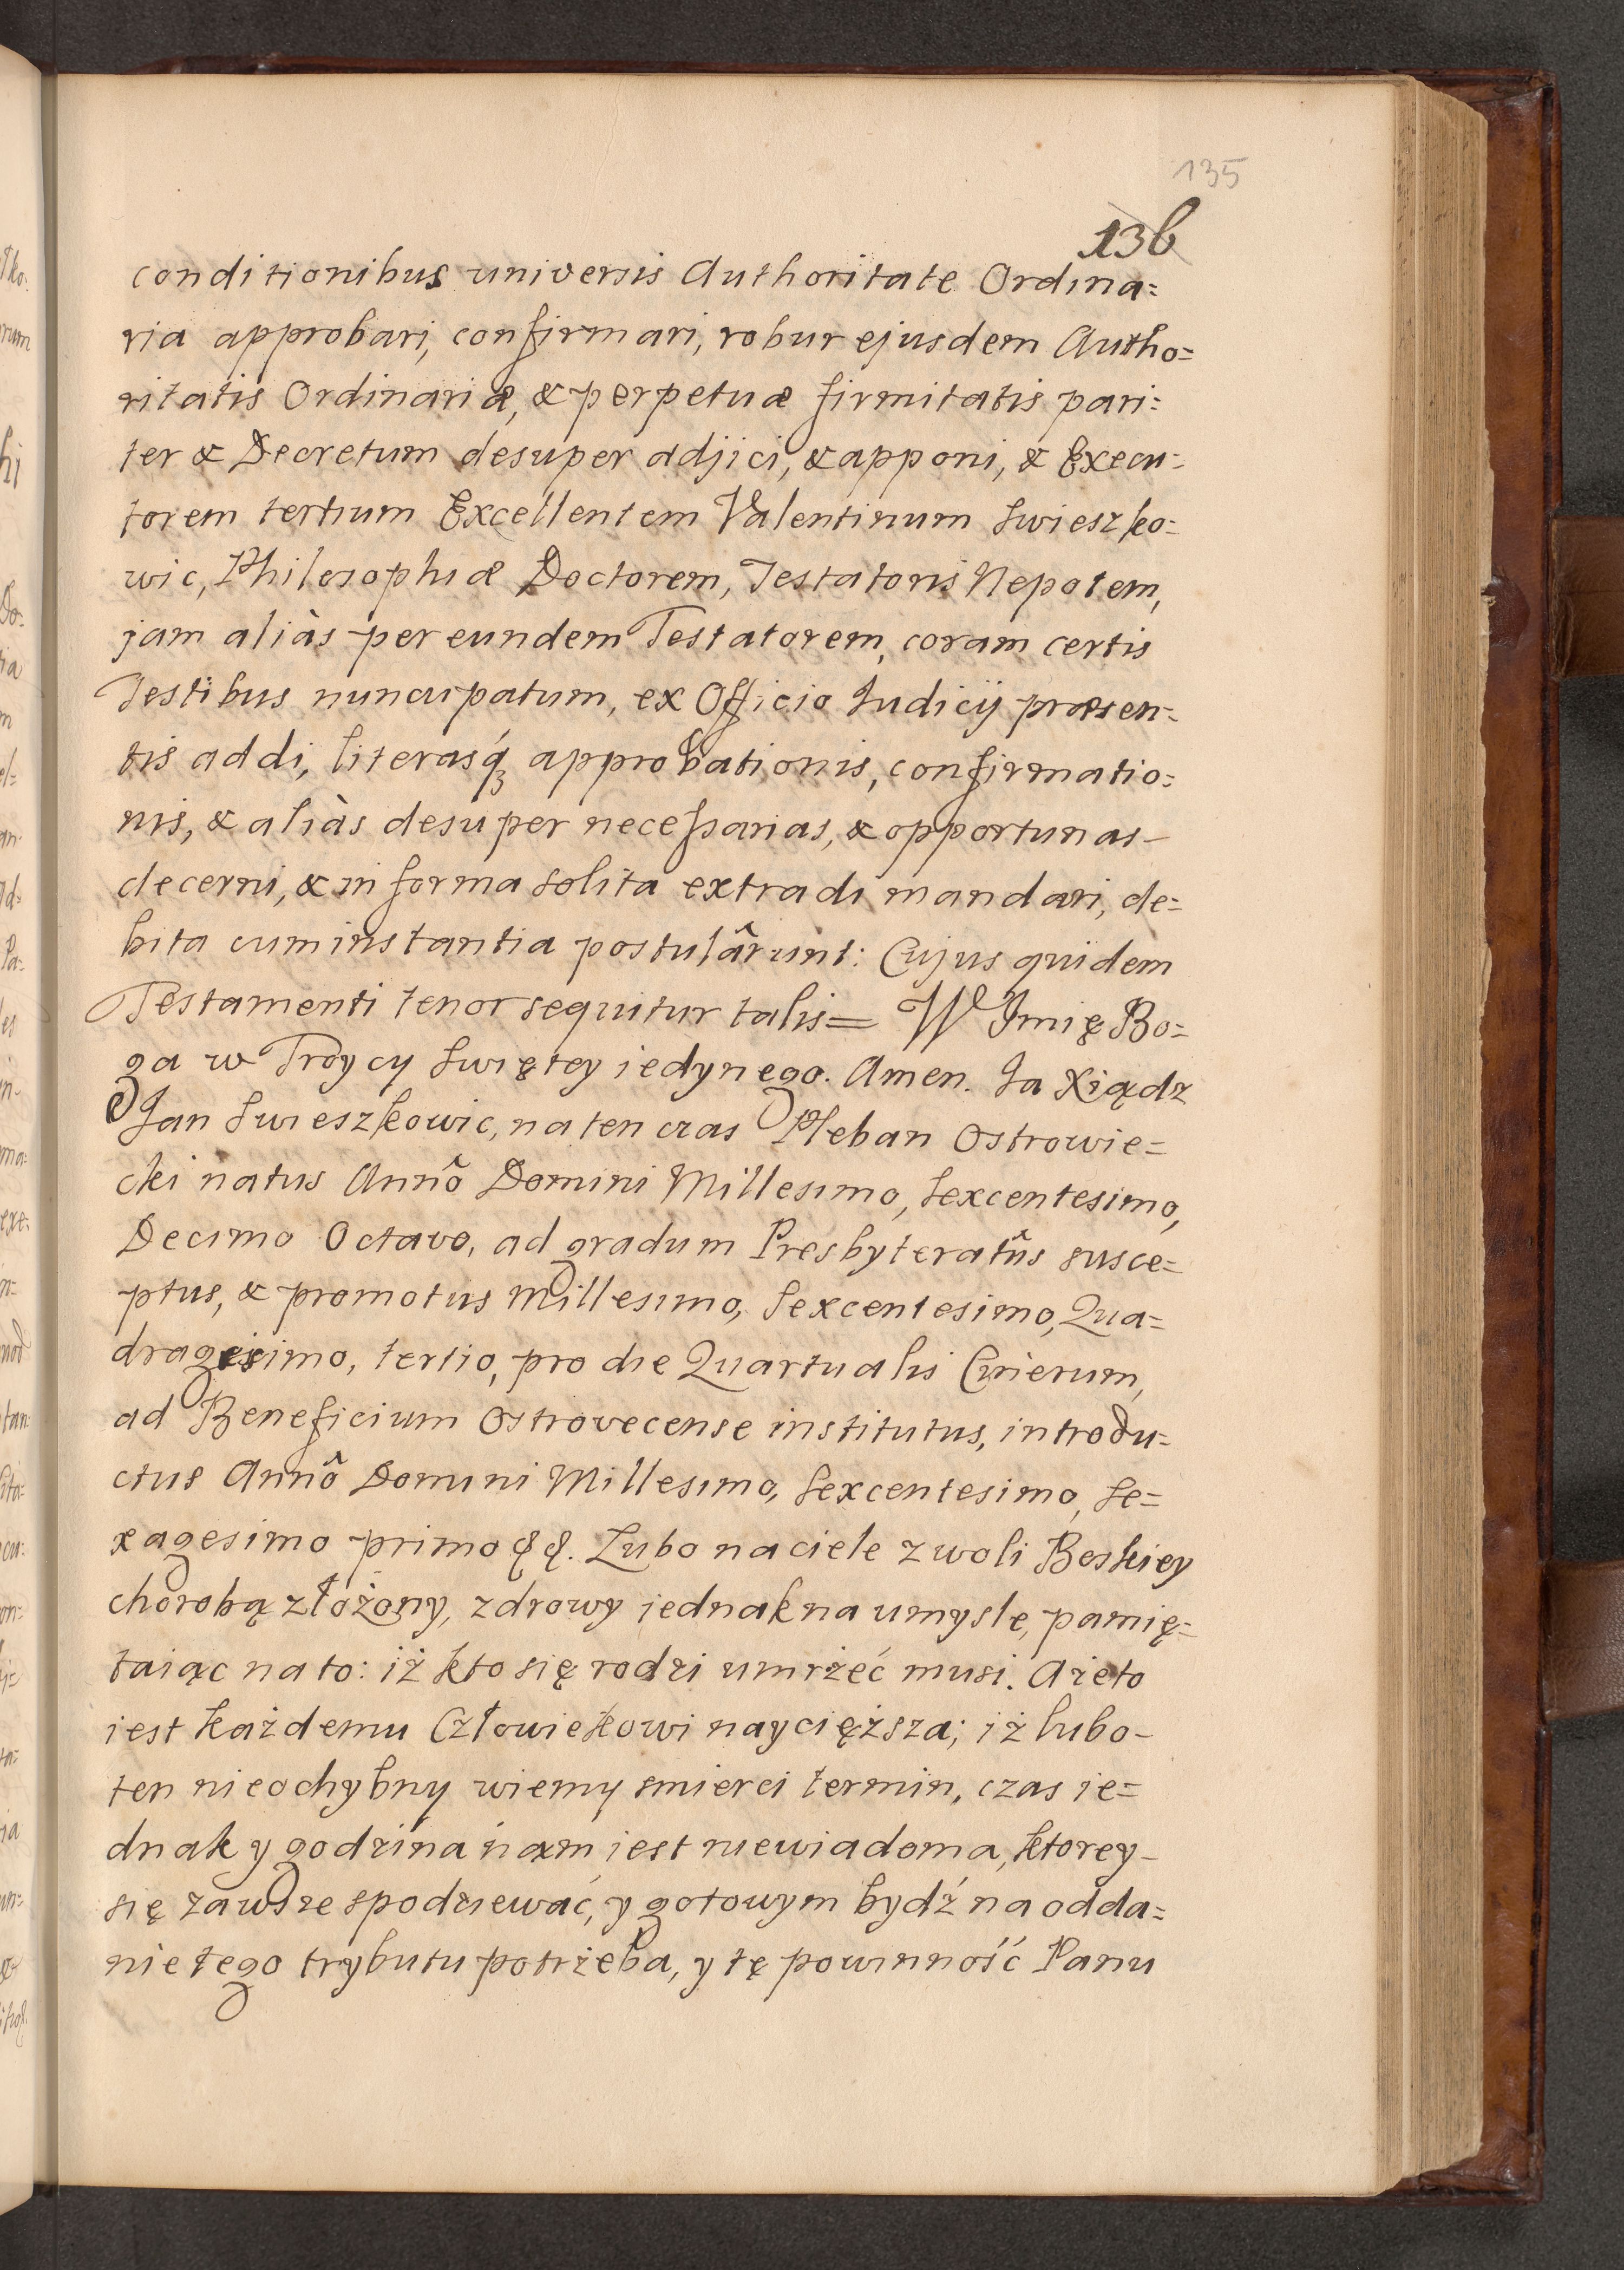 135
136
conditionibus universis Authoritate Ordina=
ria approbari, confirmari, robur ejusdem Autho=
ritatis Ordinariæ, & perpetuæ firmitatis pari=
ter & Decretum desuper adjici, & apponi, & Execu=
torem tertium Excellentem Valentinum Swieszko=
wic, Philosophiæ Doctorem, Testatoris Nepotem,
jam aliàs per eundem Testatorem, coram certis
Testibus nuncupatum, ex Officio Judicij præsen=
tis addi, literasq́ꝫ approbationis, confirmatio=
nis, & aliàs desuper neceßarias, & opportunas-
decerni, & in forma solita extradi mandari, de=
bita cum instantia postulârunt: Cujus quidem
Testamenti tenor sequitur talis= W Jmię Bo=
ga w Troycy Swiętey iedynego. Amen. Ja Xiądz
Jan Swieszkowic, na ten czas Pleban Ostrowie=
cki natus Annô Domini Millesimo, Sexcentesimo,
Decimo Octavo, ad gradum Presbyteratûs susce=
ptus, & promotus Millesimo, Sexcentesimo, Qua=
dragesimo, tertio, pro die Quartualis Cinerum,
ad Beneficium Ostrovecense institutus, introdu=
ctus Annô Domini Millesimo, Sexcentesimo, Se=
xagesimo primo &&. Lubo na ciele z woli Boskiey
chorobą złożony, zdrowy jednak na umysle, pamię=
taiąc na to: iż kto się rodzi umrzeć musi. A że to
iest każdemu Człowiekowi naycięższa; iż lubo-
ten nieochybny wiemy smierci termin, czas ie=
dnak y godzina nam iest niewiadoma, ktorey-
się zawsze spodziewać, y gotowym bydź na odda=
nie tego trybutu potrzeba, y tę powinność Panu